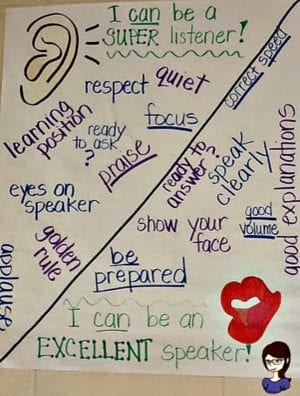 I can be a
SUPER listener!
respect
quiet
correct speed
learning
position
focus
ready
to ask
?
praise
ready to
answer?
speak
clearly
good explanations
eyes on
speaker
good
volume
show your
face
golden
rule
applause
be
prepared
I can be an
EXCELLENT speaker!